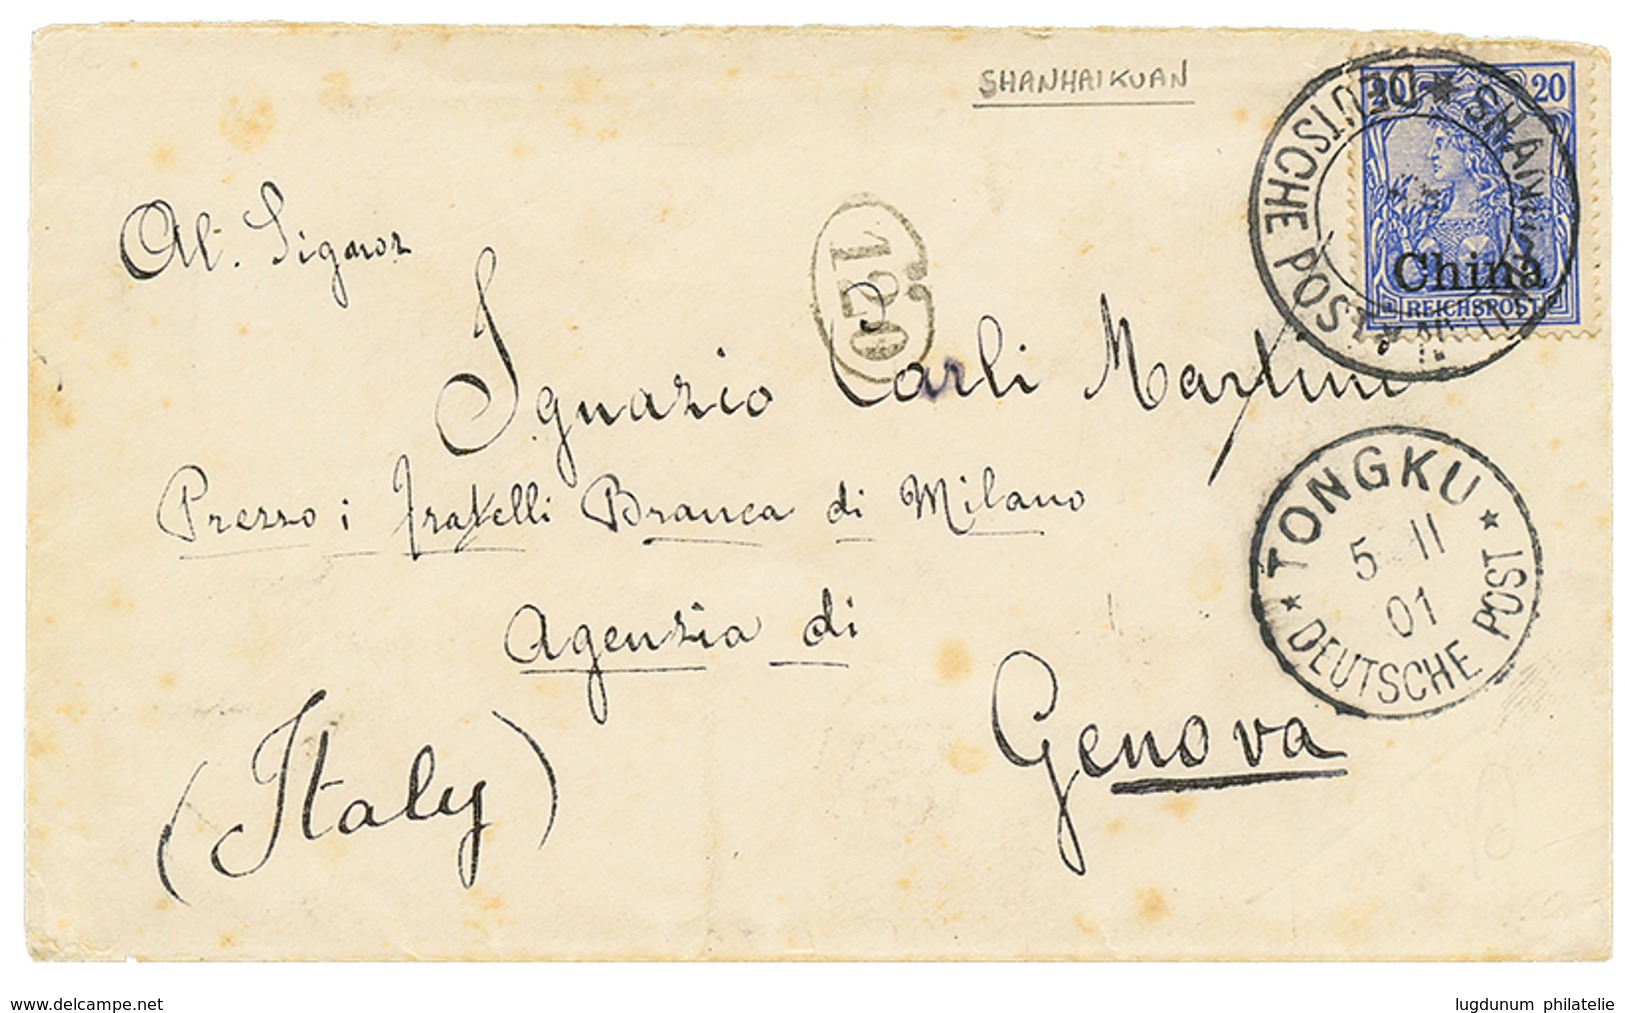 SHANHAIKUAN
20 20
China
REICHSPOST
DEUTSCHE POST
TONGKU
5 11
01
DEUTSCHE POST
120
Al. Signor
Ignazio Carli Martini
Presso i Fratelli Branca di Milano
Agenzia di
Genova
(Italy)
www.delcampe.net
lugdunum philatelie